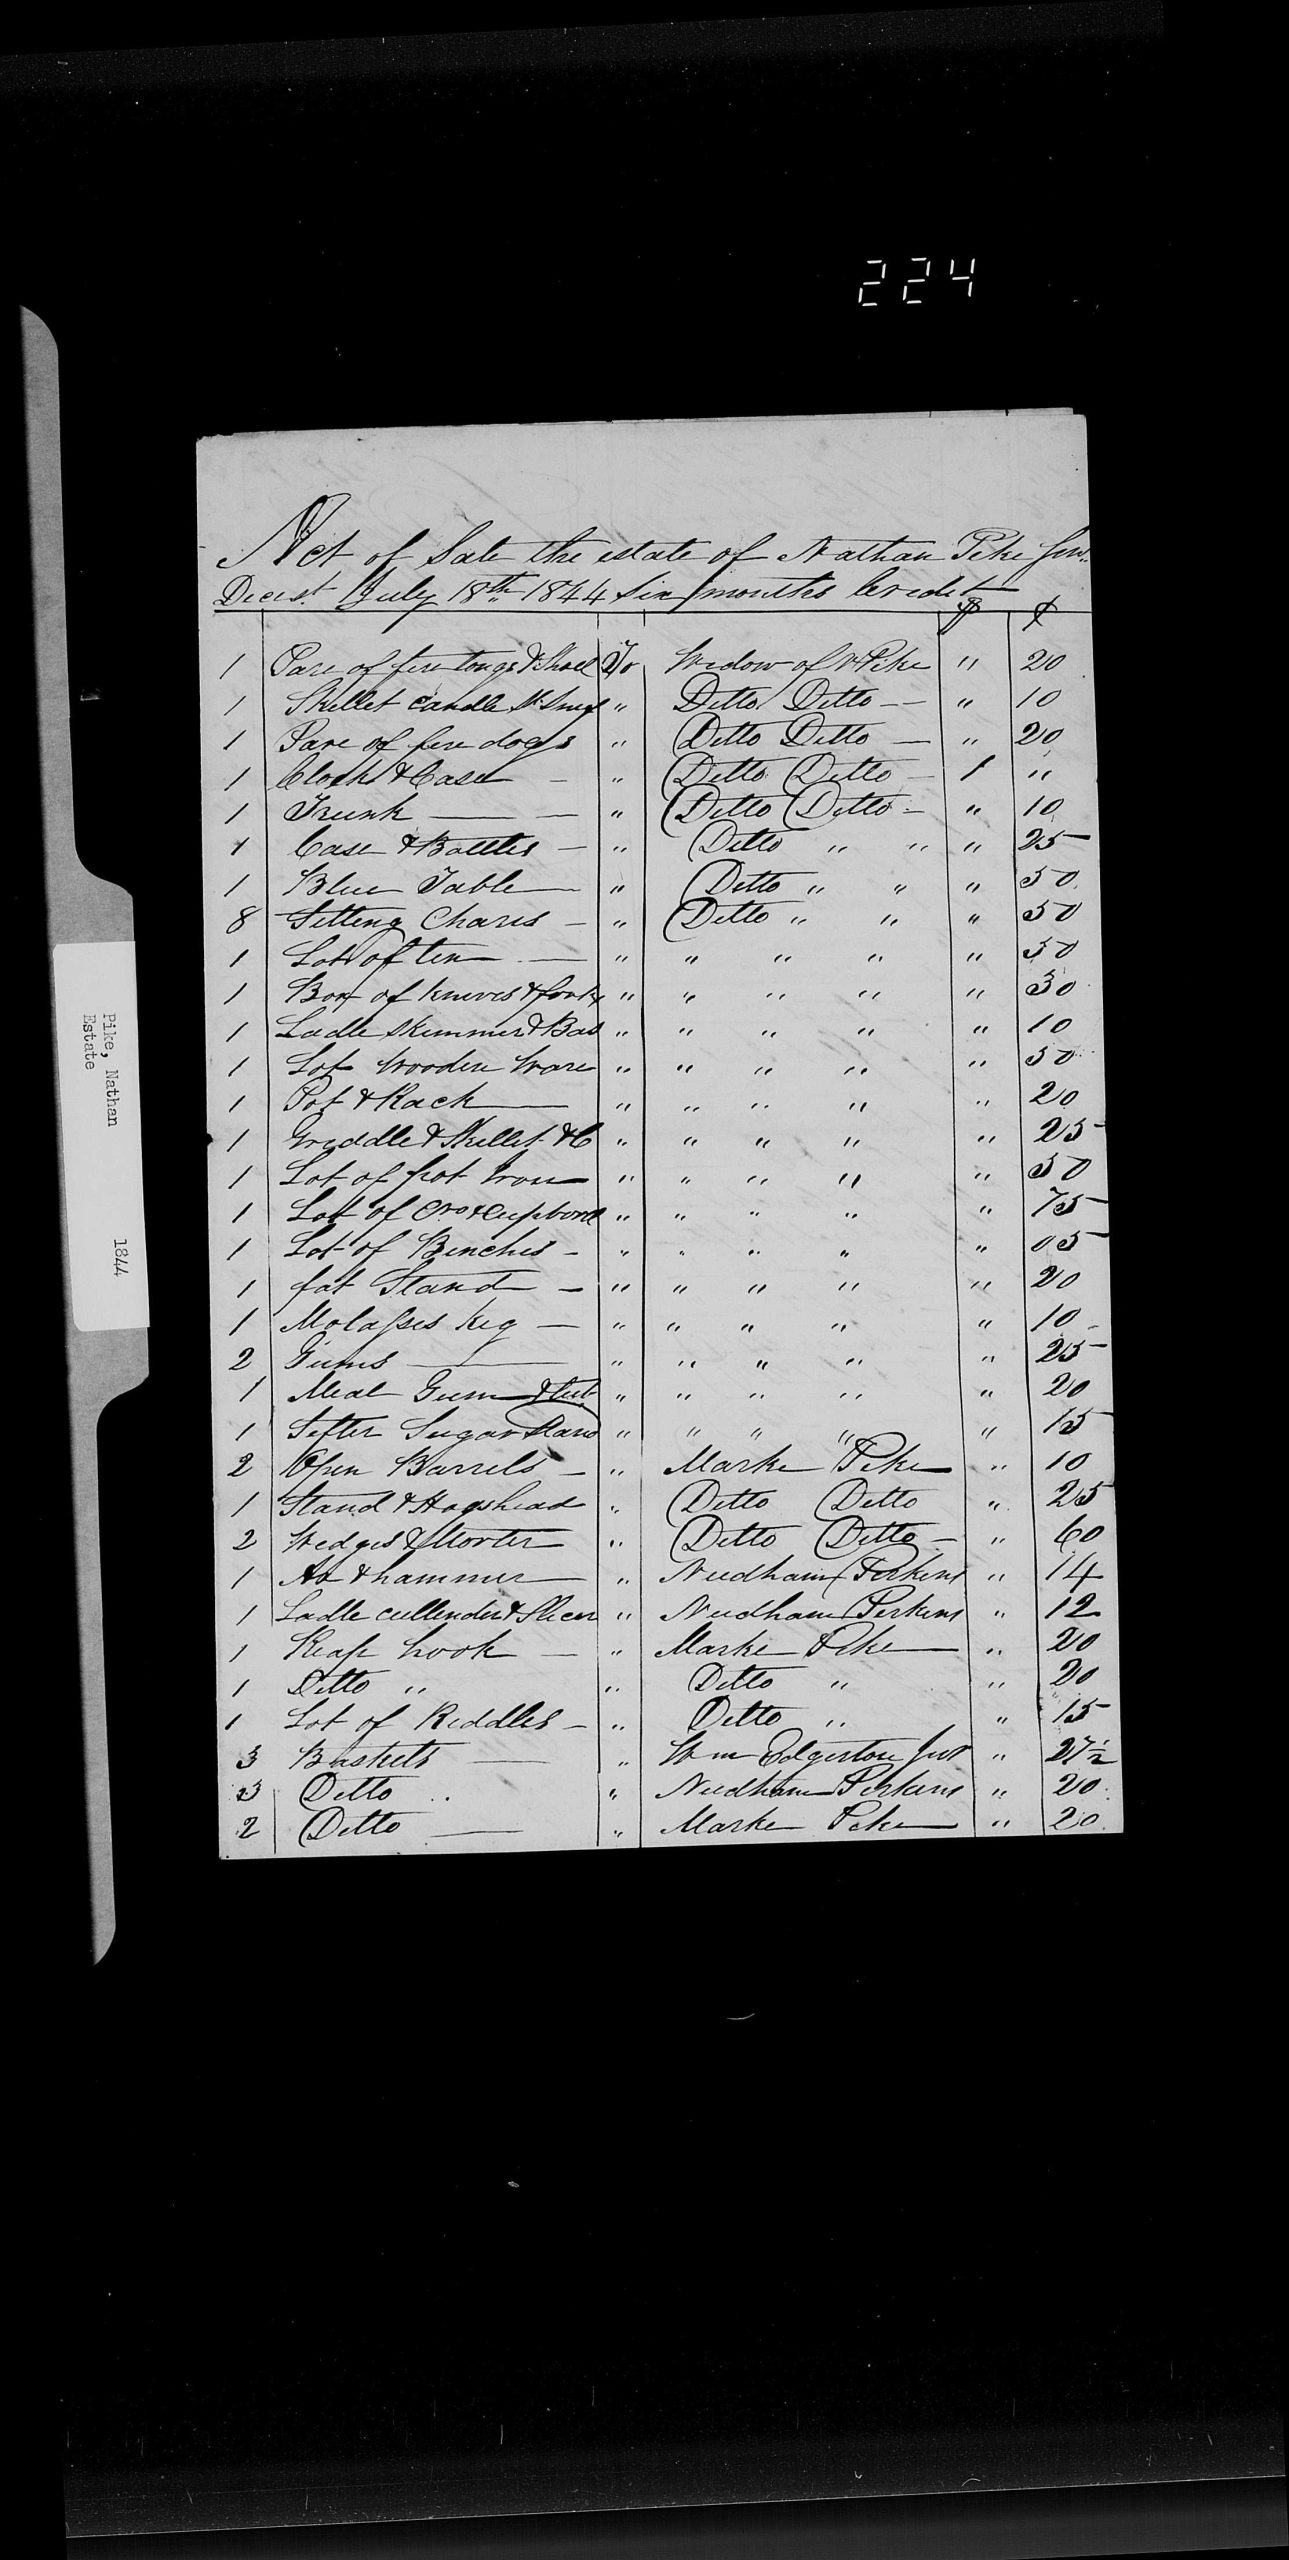 224
Pike, Nathan 1844
Estate
Act of Sale the estate of Nathan Pike Senr.
Decest. July 18th 1844 six months Credit
$ ¢
1 Pare of fire tongs & Shovel To Widow of N Pike " 20
1 Skillet candle " Ditto Ditto — " 10
1 Pare of fire dogs " Ditto Ditto — " 20
1 Clock & Case — " Ditto Ditto — 1 "
1 Trunk — — " Ditto Ditto — " 10
1 Case & Bottles — " Ditto " " " 25
1 Blue Table — " Ditto " " " 50
8 Sitting Chares — " Ditto " " " 50
1 Lot of tin — " " " " " 50
1 Box of knives & forks " " " " " 30
1 Ladle skimmer & " " " " " 10
1 Lot Wooden Ware " " " " " 50
1 Pot & Rack — " " " " " 20
1 Griddle & Skillet &C " " " " " 25
1 Lot of pot Iron " " " " " 50
1 Lot of & cupbord " " " " " 75
1 Lot of Benches — " " " " " 05
1 fat Stand — " " " " " 20
1 Molasses keg — " " " " " 10
2 Gums — " " " " " 25
1 Meal Gum & tub " " " " " 20
1 Sifter Sugar Stand " " " " " 15
2 Open Barrels — " Marke Pike " 10
1 Stand & Hogshead " Ditto Ditto " 25
2 Wedges & Morter " Ditto Ditto — " 60
1 Ax & hammer — " Needham Perkins " 14
1 Ladle cullender & Slicer " Needham Perkins " 12
1 Reap hook — " Marke Pike " 20
1 Ditto " " Ditto " " 20
1 Lot of Riddles — " Ditto " " 15
3 Baskets — " Wm Edgerton Junr " 27½
3 Ditto " " Needham Perkins " 20
2 Ditto — " Marke Pike " 20